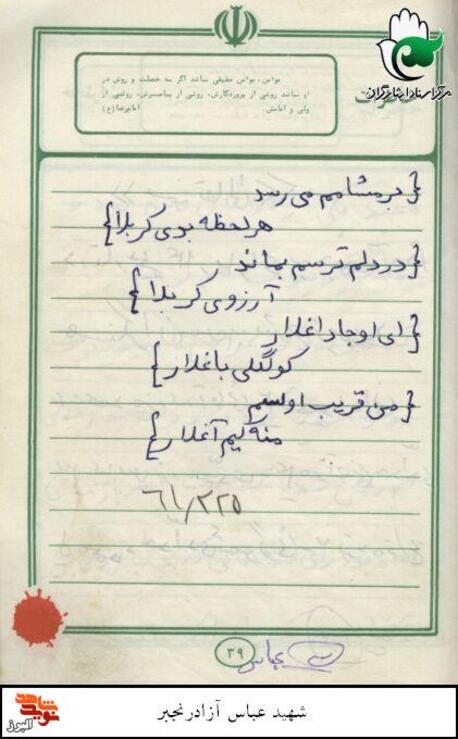 مرکز اسناد ایثارگران
مؤمن، مؤمن حقیقی نباشد اگر سه خصلت و روش در
او نباشد روشی از پروردگارش، روشی از پیامبرش، روشی از
ولی و امامش. امام رضا (ع)
{ بر مشامم می رسد
هر لحظه بوی کربلا }
{ در دلم ترسم بماند
آرزوی کربلا }
{ ای اوجا داغلار
کوگللی باغلار }
{ من قریب اولسم
منه کیم آغلار }
۶۱/۳/۲۵
عباس
۳۹
نوید شاهد
البرز
شهید عباس آزادرنجبر